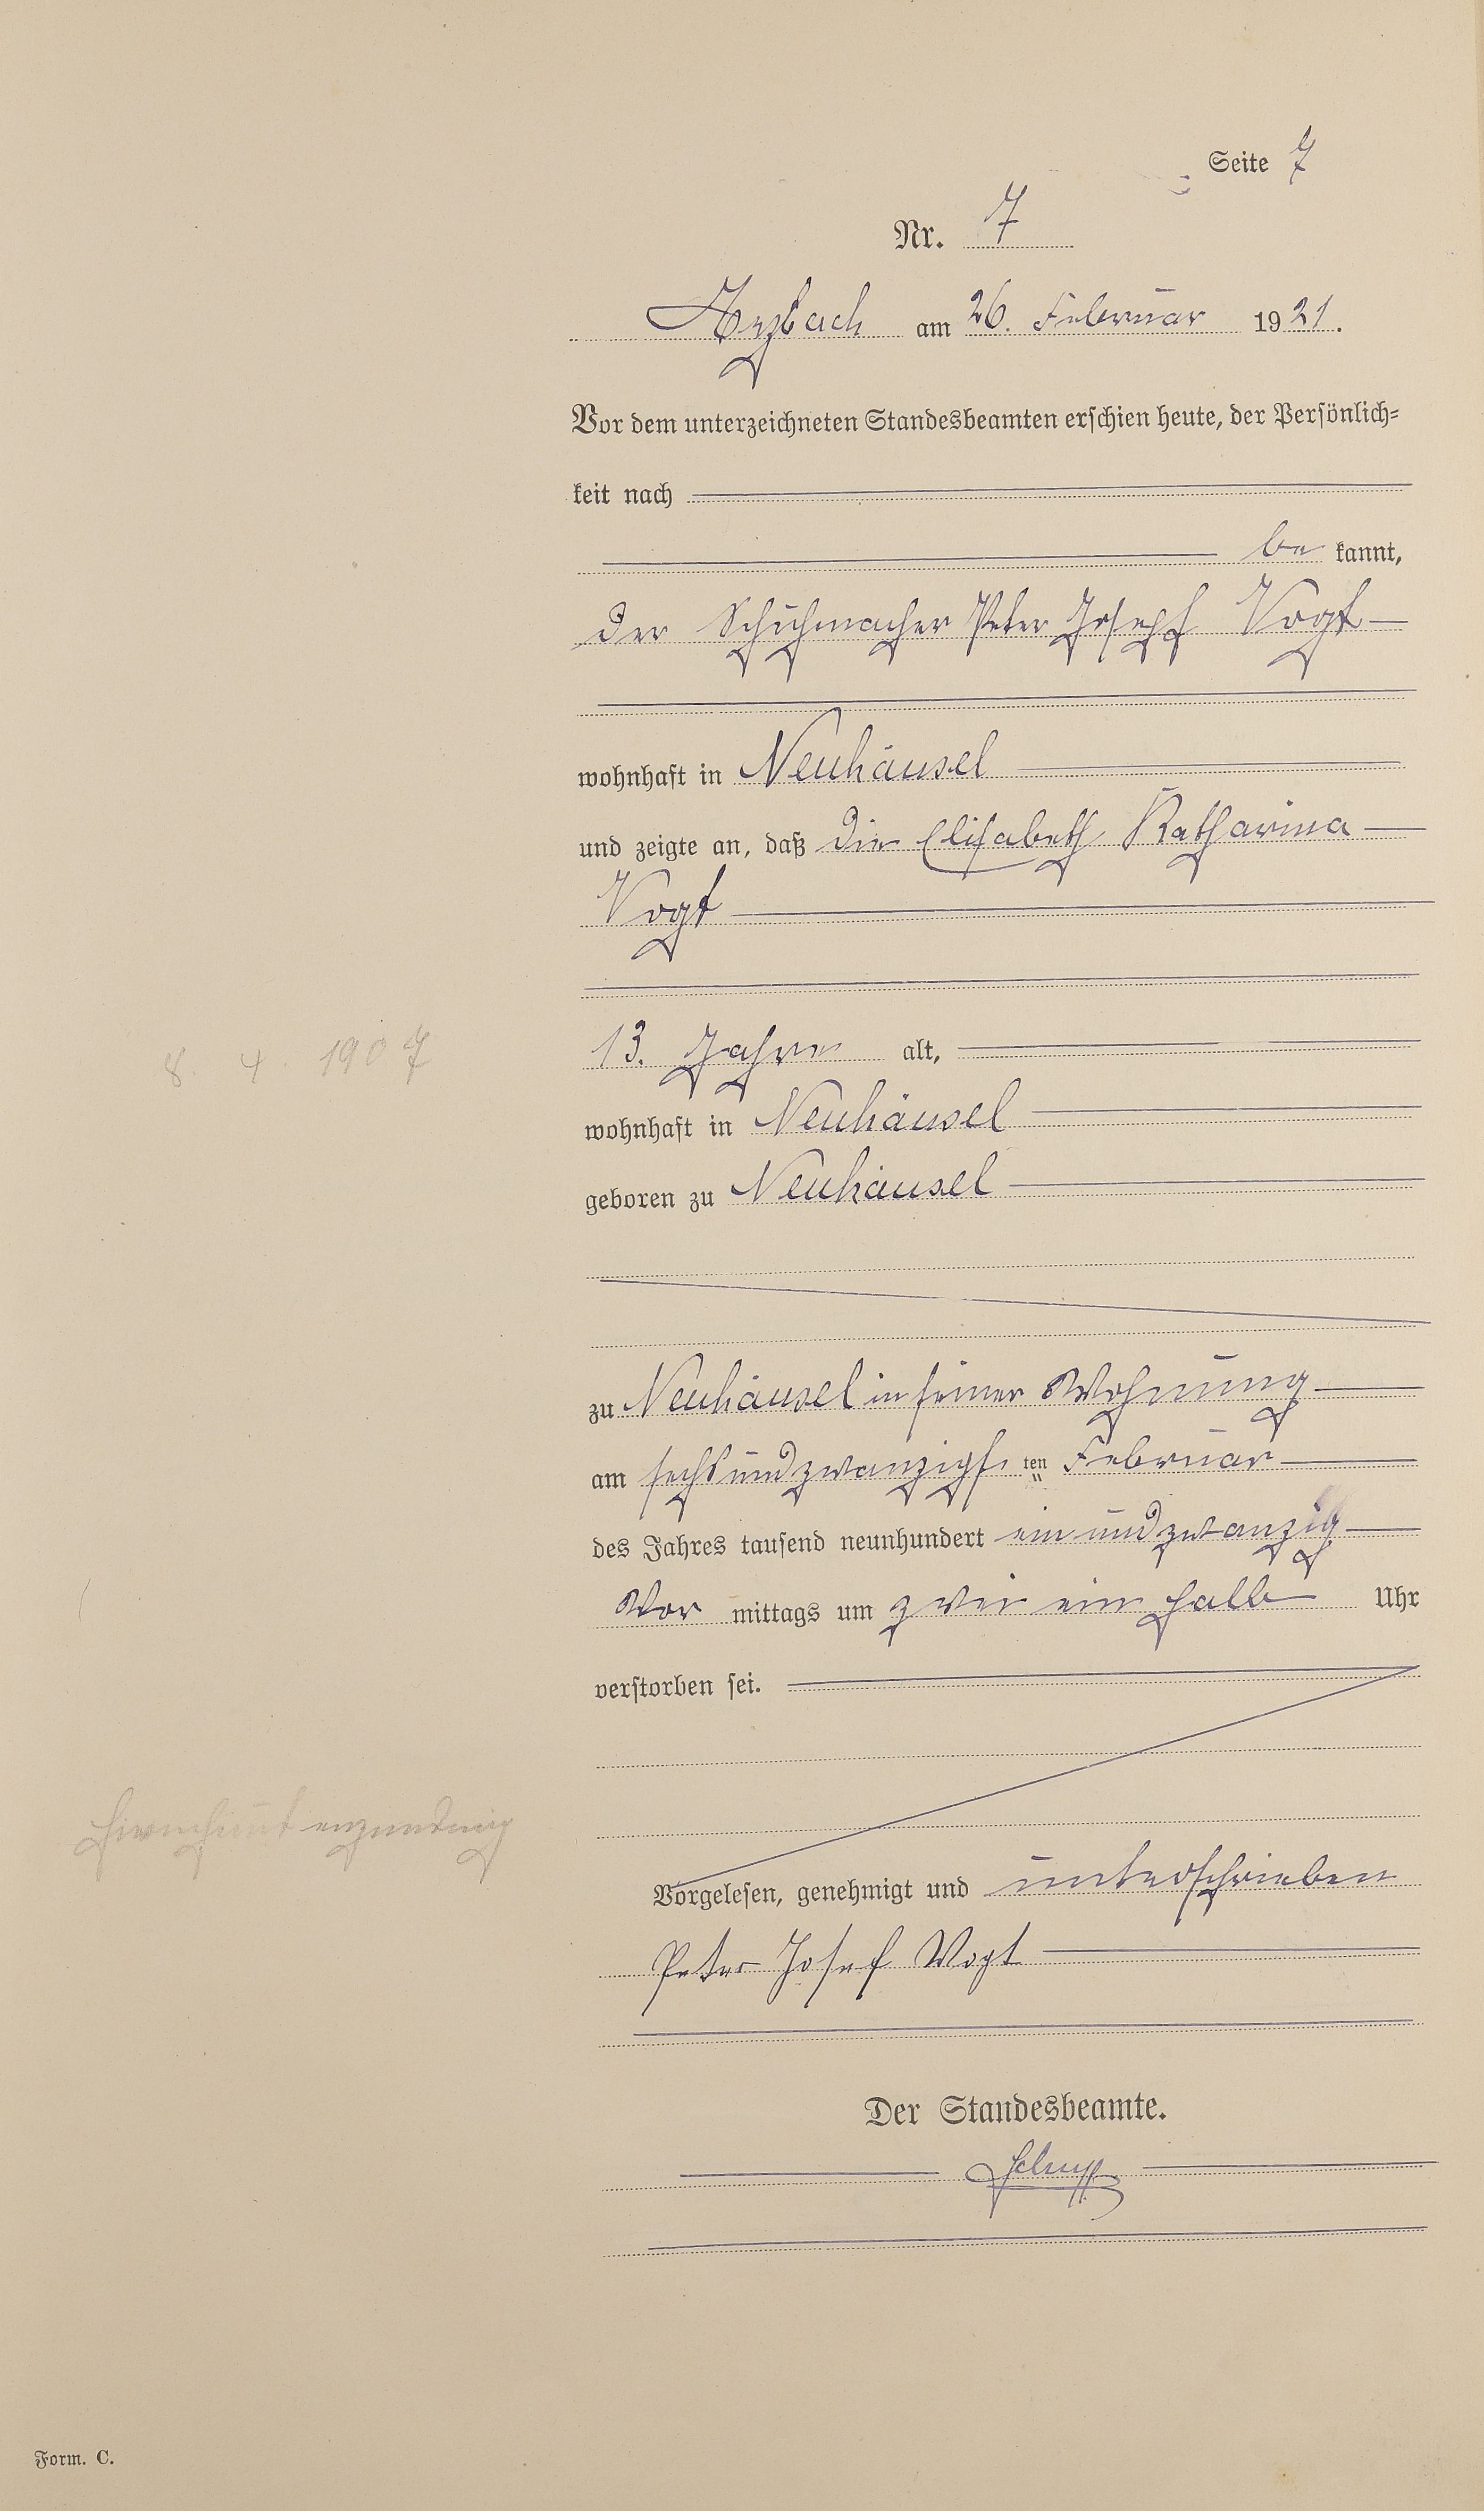 Seite 7
Nr. 7
Arzbach am 26. Februar 1921.
Vor dem unterzeichneten Standesbeamten erschien heute, der Persönlich-
keit nach
be kannt,
der Schuhmacher Peter Joseph Vogt
wohnhaft in Neuhäusel
und zeigte an, daß die Elisabeth Katharina
Vogt
13. Jahre alt,
8. 4. 1907
wohnhaft in Neuhäusel
geboren zu Neuhäusel
zu Neuhäusel in seiner Wohnung
am sechsundzwanzigs ten Februar
des Jahres tausend neunhundert ein und zwanzig
Vor mittags um zwei ein halb Uhr
verstorben sei.
Hirnhautenzundung
Vorgelesen, genehmigt und unterschrieben
Peter Josef Vogt
Der Standesbeamte.
Form. C.